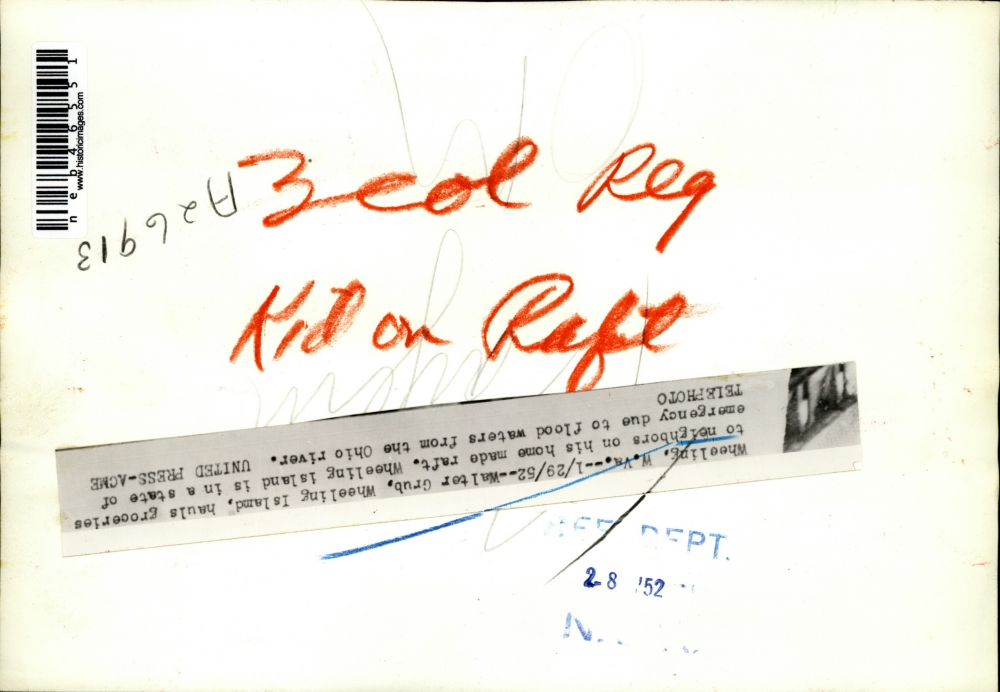 neb46551
www.historicimages.com
A26913
3 col Reg
Kid on Raft
Wheeling, W.Va.--1/29/52--Walter Grub, Wheeling Island, hauls groceries
to neighbors on his home made raft. Wheeling Island is in a state of
emergency due to flood waters from the Ohio river. UNITED PRESS-ACME
TELEPHOTO
REF DEPT.
28 '52